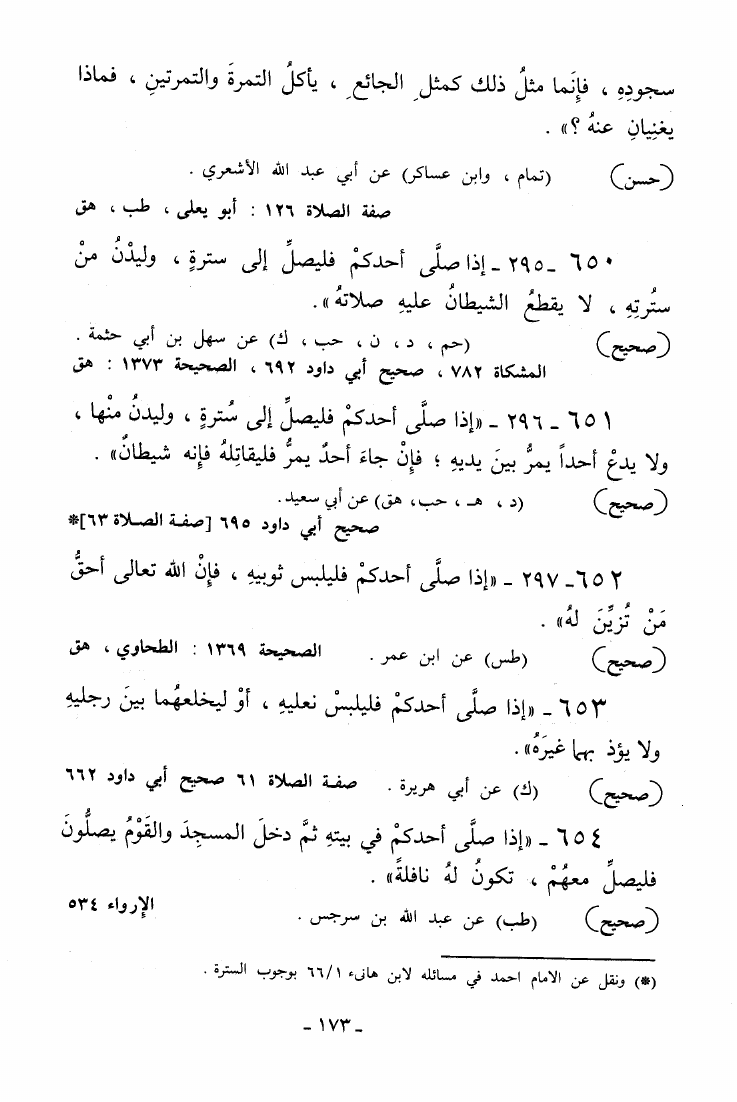 سجودِهِ ، فإِنَما مثلُ ذلك كمثلِ الجائعِ ، يأكلُ التمرةَ والتمرتينِ ، فماذا
يغنِيانِ عنهُ ؟» .
(حسن) (تمام ، وابن عساكر) عن أبي عبد الله الأشعري .
صفة الصلاة ١٢٦ : أبو يعلى ، طب ، هق
٦٥٠ ـ ٢٩٥ ـ إذا صلَّى أحدكمْ فليصلِّ إلى سترةٍ ، وليدْنُ منْ
سُترتِهِ ، لا يقطعُ الشيطانُ عليهِ صلاتهُ» .
(صحيح) (حم ، د ، ن ، حب ، ك) عن سهل بن أبي حثمة .
المشكاة ٧٨٢ ، صحيح أبي داود ٦٩٢ ، الصحيحة ١٣٧٣ : هق
٦٥١ ـ ٢٩٦ ـ «إذا صلَّى أحدكمْ فليصلِّ إلى سُترةٍ ، وليدنُ منْها ،
ولا يدعْ أحداً يمرُّ بينَ يديهِ ؛ فإِنْ جاءَ أحدٌ يمرُّ فليقاتِلهُ فإنه شيطانٌ» .
(صحيح) (د ، هـ ، حب، هق) عن أبي سعيد.
صحيح أبي داود ٦٩٥ [صفة الصلاة ٦٣]*
٦٥٢ ـ ٢٩٧ ـ «إذا صلَّى أحدكمْ فليلبس ثوبيهِ ، فإِنْ الله تعالى أحقُّ
مَنْ تُزيِّنَ لهُ» .
(صحيح) (طس) عن ابن عمر . الصحيحة ١٣٦٩ : الطحاوي ، هق
٦٥٣ ـ «إذا صلَّى أحدكمْ فليلبسْ نعليهِ ، أوْ ليخلعهُما بينَ رجليهِ
ولا يؤذ بهما غيرَهُ» .
(صحيح) (ك) عن أبي هريرة . صفة الصلاة ٦١ صحيح أبي داود ٦٦٢
٦٥٤ ـ «إذا صلَّى أحدكمْ في بيتهِ ثمَّ دخلَ المسجِدَ والقَوْمُ يصلُّونَ
فليصلِّ معهُمْ ، تكونُ لهُ نافلةً» .
(صحيح) (طب) عن عبد الله بن سرجس . الإرواء ٥٣٤
(*) ونقل عن الامام احمد في مسائله لابن هانىء ٦٦/١ بوجوب السترة .
ـ ١٧٣ ـ